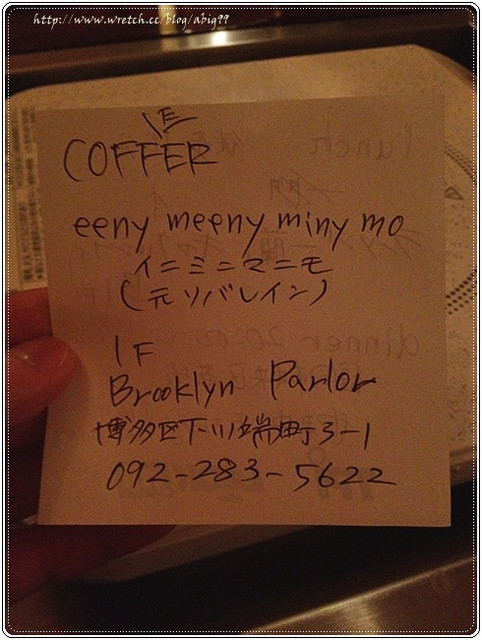 http://www.wretch.cc/blog/abig99
COFFER
eeny meeny miny mo
イニミニマニモ
(元ソバレイン)
1F
Brooklyn Parlor
博多区下川端町3-1
092-283-5622
lunch
dinner